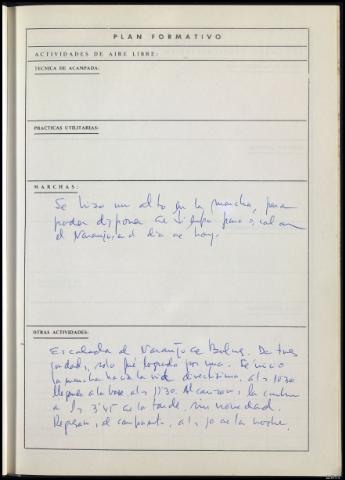 PLAN FORMATIVO
ACTIVIDADES DE AIRE LIBRE:
TECNICA DE ACAMPADA:
PRACTICAS UTILITARIAS:
MARCHAS:
Se hizo un alto en la marcha, para
poder disponer de tiempo para escalar
el Naranjo, en el dia de hoy.
OTRAS ACTIVIDADES:
Escalada al Naranjo de Bulnes. De tres
cordadas, solo fué logrado por una. Se inició
la marcha hacia la vía directísima, a las 10'30
llegando a la base, a las 11'30. Alcanzan la cumbre
a las 3'45 de la tarde, sin novedad.
Regresan, al campamento, a las 10 de la noche.